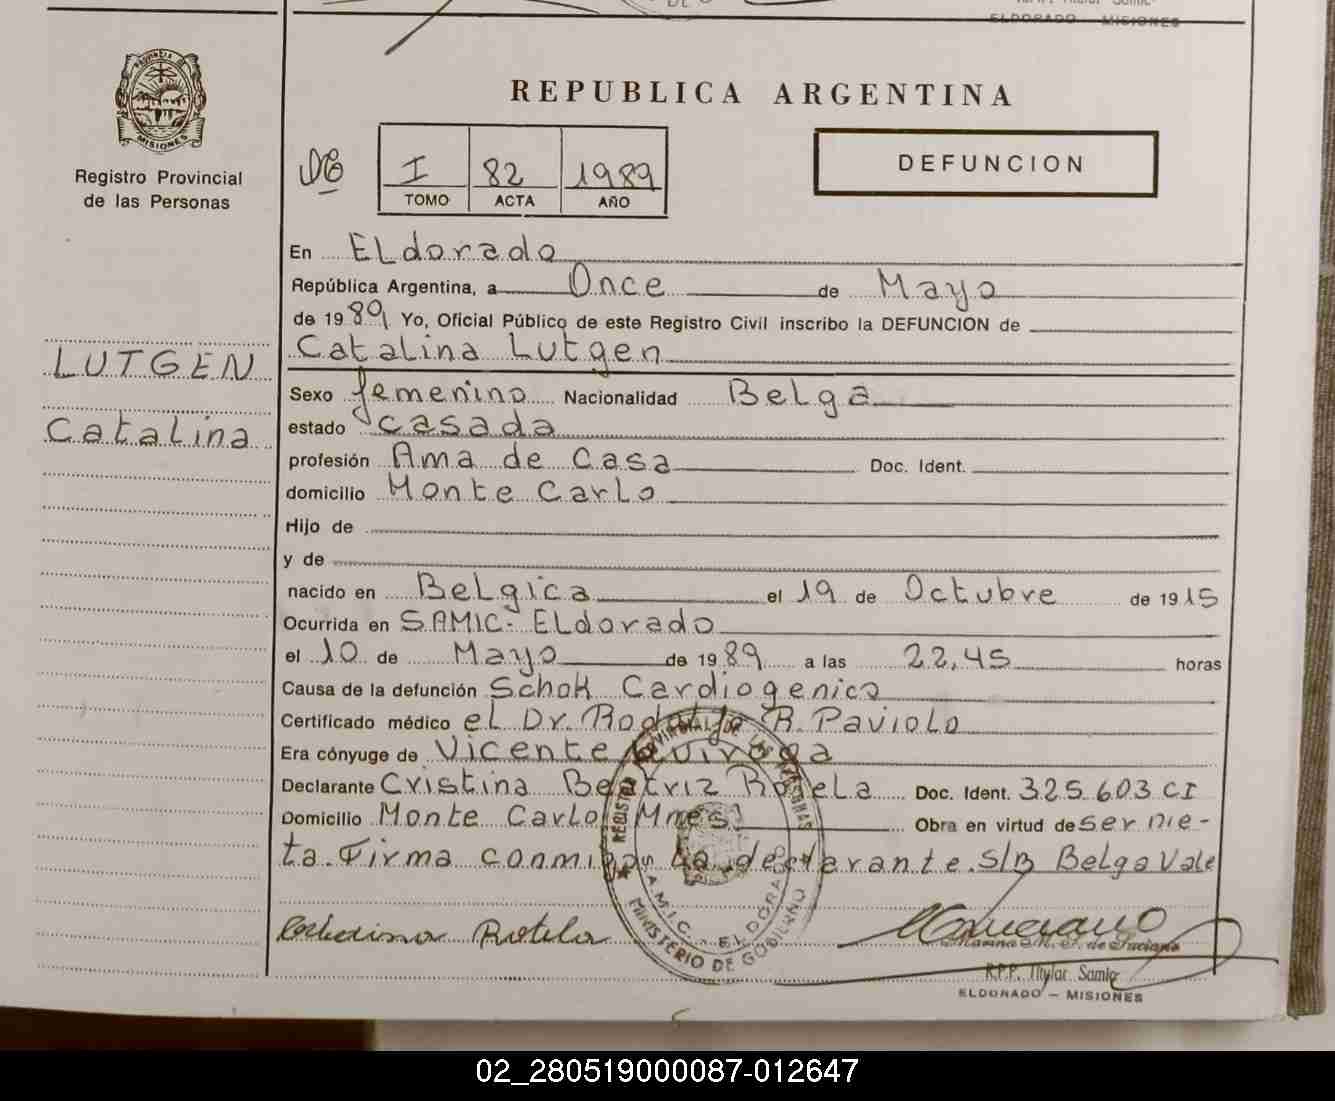 ELDORADO - MISIONES
PROVINCIA DE
MISIONES
Registro Provincial
de las Personas
REPUBLICA ARGENTINA
I 82 1989
TOMO ACTA AÑO
DEFUNCION
En ELdorado
República Argentina, a Once de Mayo
de 1989 Yo, Oficial Público de este Registro Civil inscribo la DEFUNCION de
Catalina Lutgen
LUTGEN
Catalina
Sexo femenino Nacionalidad Belga
estado casada
profesión Ama de Casa Doc. Ident.
domicilio Monte Carlo
Hijo de
y de
nacido en Belgica el 19 de Octubre de 1915
Ocurrida en SAMIC- ELdorado
el 10 de Mayo de 1989 a las 22,45 horas
Causa de la defunción Schok Cardiogenico
Certificado médico el Dr. Rodolfo R. Paviolo
Era cónyuge de Vicente Quiroga
Declarante Cristina Beatriz Rotela Doc. Ident. 325.603 CI
Domicilio Monte Carlo Mnes Obra en virtud de ser nie-
ta. Firma conmigo La declarante. S/B Belga Vale
REGISTRO PROVINCIAL DE LAS PERSONAS
S.A.M.I.C. - ELDORADO
MINISTERIO DE GOBIERNO
Cristina Rotela
Marina M. F. de Luciano
R.P.P. Titular Samic
ELDORADO - MISIONES
02_280519000087-012647